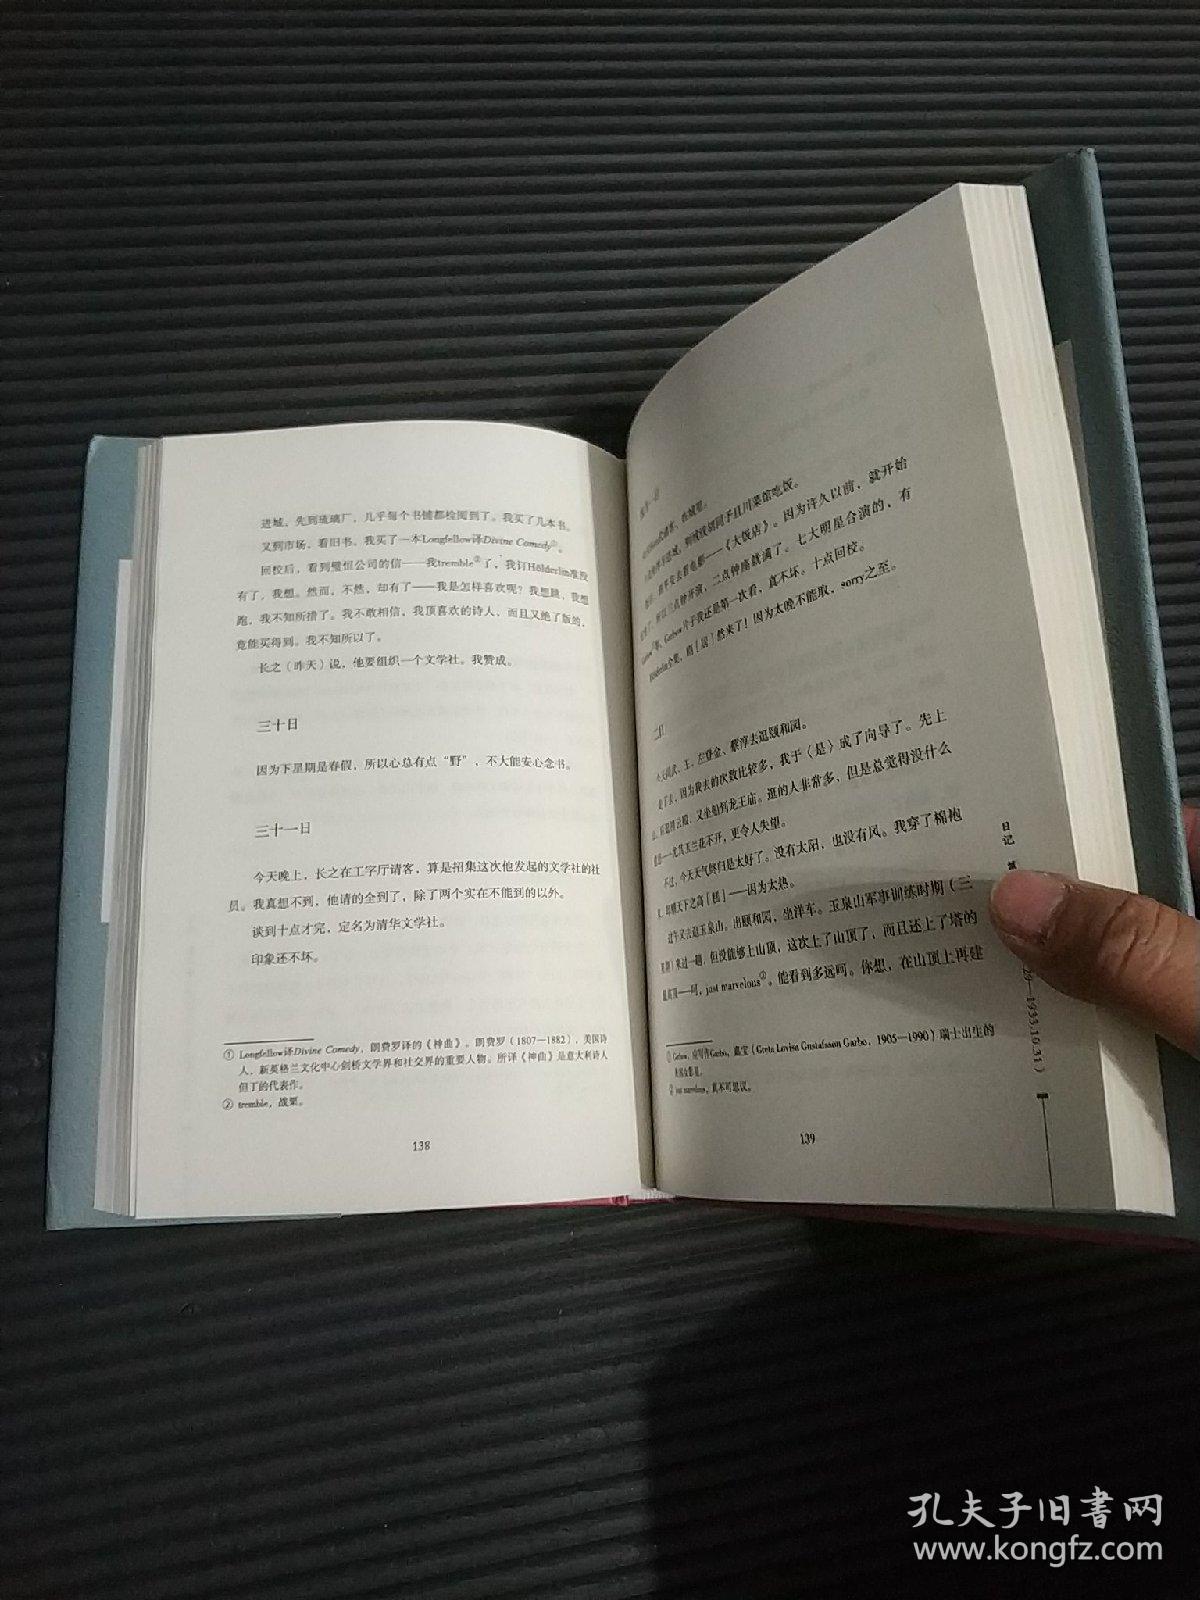 进城，先到琉璃厂，几乎每个书铺都检阅到了。我买了几本书。
又到市场，看旧书，我买了一本Longfellow译Divine Comedy①。
回校后，看到璧恒公司的信——我tremble②了，我订Hölderlin准没
有了，我想。然而，不然，却有了——我是怎样喜欢呢？我想跳，我想
跑，我不知所措了。我不敢相信，我顶喜欢的诗人，而且又绝了版的，
竟能买得到。我不知所以了。
长之（昨天）说，他要组织一个文学社。我赞成。
三十日
因为下星期是春假，所以心总有点“野”，不大能安心念书。
三十一日
今天晚上，长之在工字厅请客，算是招集这次他发起的文学社的社
员。我真想不到，他请的全到了，除了两个实在不能到的以外。
谈到十点才完，定名为清华文学社。
印象还不坏。
① Longfellow译Divine Comedy，朗费罗译的《神曲》。朗费罗（1807—1882），美国诗
人，新英格兰文化中心剑桥文学界和社交界的重要人物。所译《神曲》是意大利诗人
但丁的代表作。
② tremble，战栗。
138
川菜馆吃饭。
看电影——《大饭店》。因为许久以前，就开始
三点钟开演，二点钟座就满了。七大明星合演的，有
于我还是第一次看，真不坏。十点回校。
Hölderlin全集，倘〔居〕然来了！因为太晚不能取，sorry之至。
王、左登金、蔡淳去逛颐和园。
因为我去的次数比较多，我于〈是〉成了向导了。先上
云殿，又坐船到龙王庙。逛的人非常多，但是总觉得没什么
尤其玉兰花不开，更令人失望。
不过，今天天气终归是太好了。没有太阳，也没有风。我穿了棉袍
——因为太热。
过午又去逛玉泉山。出颐和园，坐洋车。玉泉山军事训练时期（三
来过一趟，但没能够上山顶，这次上了山顶了，而且还上了塔的
最高顶——呵，just marvelous②，他看到多远呵。你想，在山顶上再建
① Garbow，应写作Garbo，嘉宝（Greta Lovisa Gustafsson Garbo，1905—1990）瑞士出生的
美国女影星。
② just marvelous，真不可思议。
139
日记
29—1933.10.31）
孔夫子旧书网
www.kongfz.com